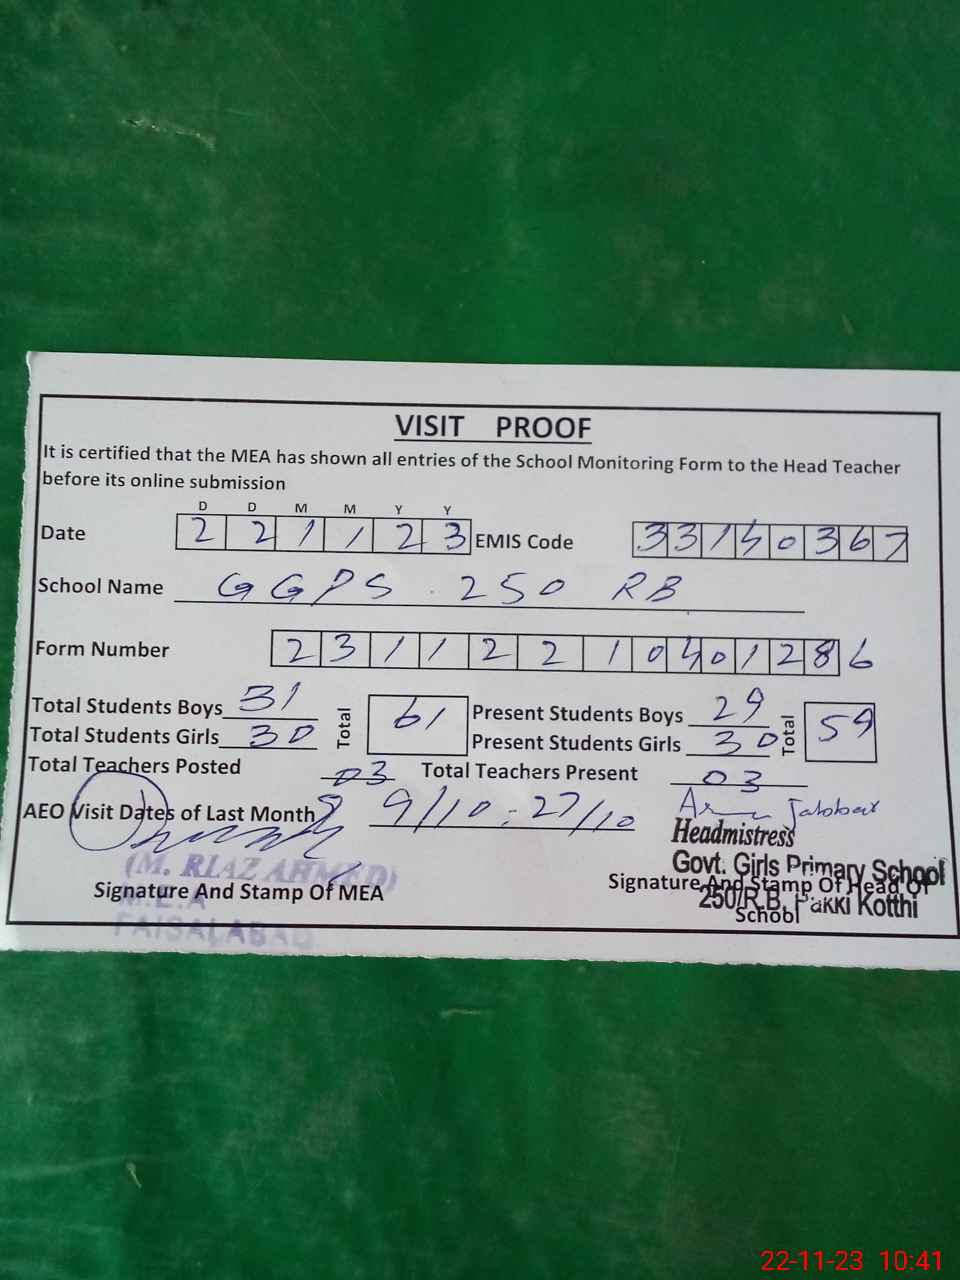 VISIT PROOF
It is certified that the MEA has shown all entries of the School Monitoring Form to the Head Teacher
before its online submission
D D M M Y Y
Date 2 2 1 1 2 3 EMIS Code 3 3 1 4 0 3 6 7
School Name GGPS 250 RB
Form Number 2 3 1 1 2 2 1 0 4 0 1 2 8 6
Total Students Boys 31 Total 61 Present Students Boys 29 Total 59
Total Students Girls 30 Present Students Girls 30
Total Teachers Posted 03 Total Teachers Present 03
AEO Visit Dates of Last Month 9/10 - 27/10
Headmistress
Govt. Girls Primary School
250/R.B. Pakki Kotthi
(M. RIAZ AHMED)
M.E.A
FAISALABAD
Signature And Stamp Of MEA
Signature And Stamp Of Head Of
School
22-11-23 10:41